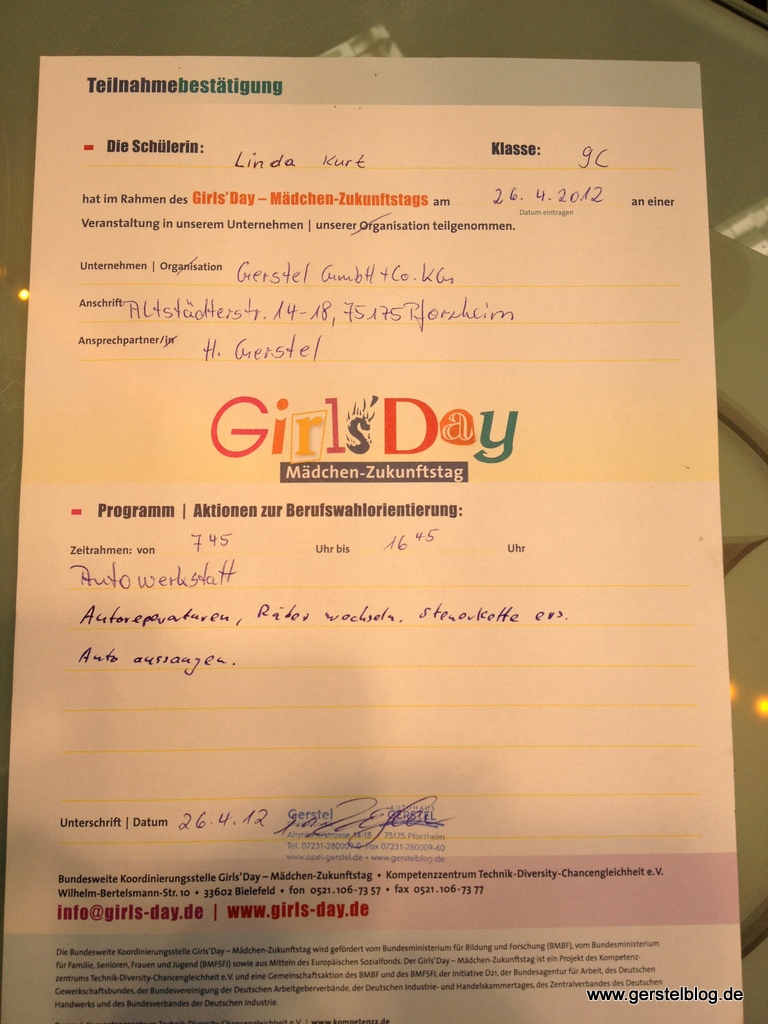 Teilnahmebestätigung
Die Schülerin: Linda Kurt Klasse: 9C
hat im Rahmen des Girls'Day – Mädchen-Zukunftstags am 26.4.2012 an einer
Datum eintragen
Veranstaltung in unserem Unternehmen | unserer Organisation teilgenommen.
Unternehmen | Organisation Gerstel GmbH + Co. KG
Anschrift: Altstädterstr. 14-18, 75175 Pforzheim
Ansprechpartner/in H. Gerstel
Girls'Day
Mädchen-Zukunftstag
Programm | Aktionen zur Berufswahlorientierung:
Zeitrahmen: von 7 45 Uhr bis 16 45 Uhr
Autowerkstatt
Autoreparaturen, Räder wechseln, Steuerkette ers.
Auto aussaugen.
Unterschrift | Datum 26.4.12
Gerstel AUTOHAUS GERSTEL
Altstädterstrasse 14-18 75175 Pforzheim
Tel. 07231-280009-0 Fax 07231-280009-60
www.opel-gerstel.de • www.gerstelblog.de
Bundesweite Koordinierungsstelle Girls'Day – Mädchen-Zukunftstag • Kompetenzzentrum Technik-Diversity-Chancengleichheit e.V.
Wilhelm-Bertelsmann-Str. 10 • 33602 Bielefeld • fon 0521.106-73 57 • fax 0521.106-73 77
info@girls-day.de | www.girls-day.de
Die Bundesweite Koordinierungsstelle Girls'Day – Mädchen-Zukunftstag wird gefördert vom Bundesministerium für Bildung und Forschung (BMBF), vom Bundesministerium
für Familie, Senioren, Frauen und Jugend (BMFSFJ) sowie aus Mitteln des Europäischen Sozialfonds. Der Girls'Day – Mädchen-Zukunftstag ist ein Projekt des Kompetenz-
zentrums Technik-Diversity-Chancengleichheit e.V. und eine Gemeinschaftsaktion des BMBF und des BMFSFJ, der Initiative D21, der Bundesagentur für Arbeit, des Deutschen
Gewerkschaftsbundes, der Bundesvereinigung der Deutschen Arbeitgeberverbände, der Deutschen Industrie- und Handelskammertages, des Zentralverbandes des Deutschen
Handwerks und des Bundesverbandes der Deutschen Industrie.
Technik-Diversity-Chancengleichheit e.V. | www.kompetenzz.de
www.gerstelblog.de